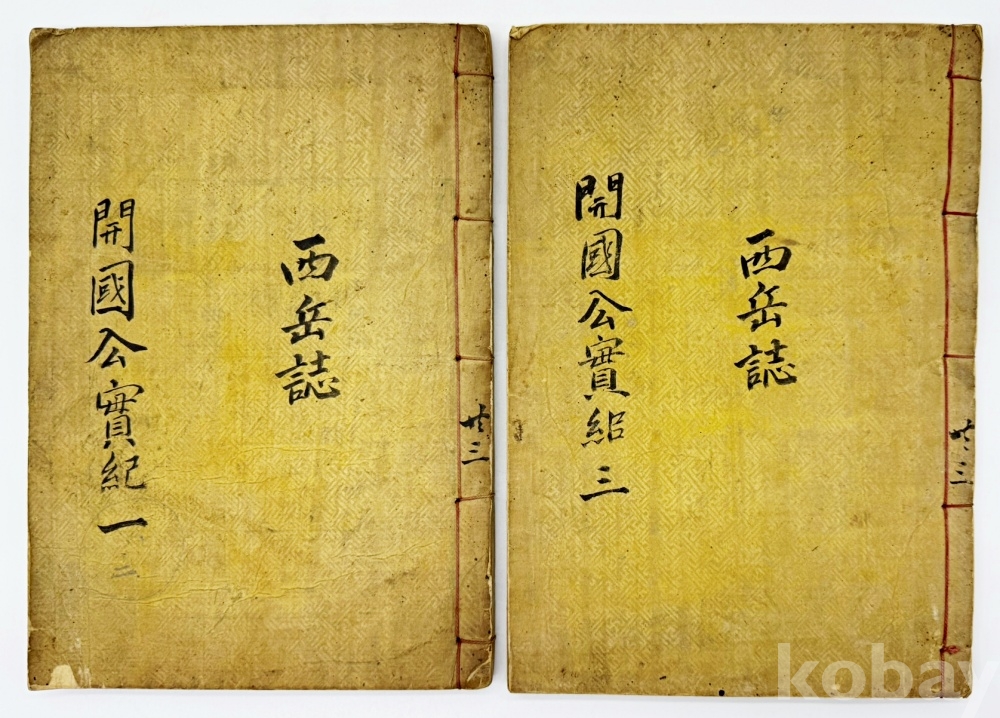 西岳誌
開國公實紀 一
二
共三
西岳誌
開國公實紀 三
共三
kobay